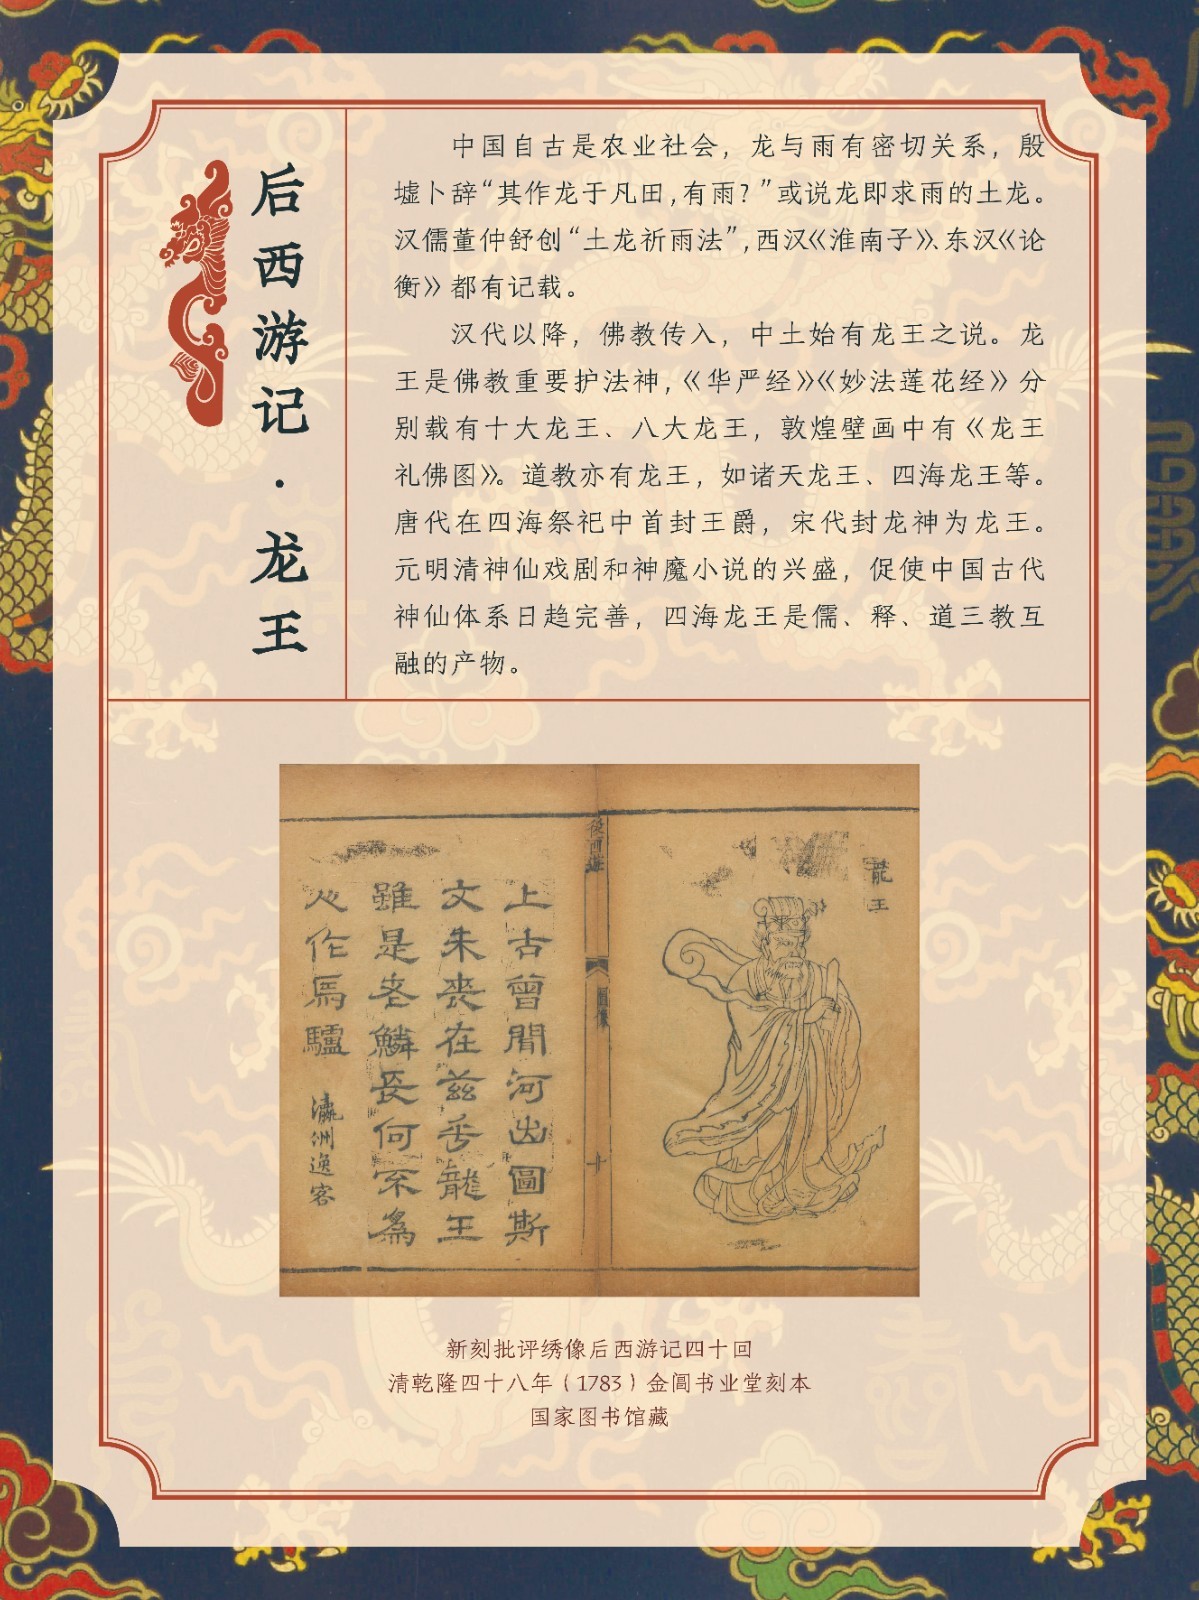 后西游记·龙王
中国自古是农业社会，龙与雨有密切关系，殷
墟卜辞“其作龙于凡田，有雨？”或说龙即求雨的土龙。
汉儒董仲舒创“土龙祈雨法”，西汉《淮南子》、东汉《论
衡》都有记载。
汉代以降，佛教传入，中土始有龙王之说。龙
王是佛教重要护法神，《华严经》《妙法莲花经》分
别载有十大龙王、八大龙王，敦煌壁画中有《龙王
礼佛图》。道教亦有龙王，如诸天龙王、四海龙王等。
唐代在四海祭祀中首封王爵，宋代封龙神为龙王。
元明清神仙戏剧和神魔小说的兴盛，促使中国古代
神仙体系日趋完善，四海龙王是儒、释、道三教互
融的产物。
龍王
後西遊
上古曾聞河出圖斯
文未喪在茲乎龍王
雖是老鱗長何不為
人作馬驢
瀛洲逸客
新刻批评绣像后西游记四十回
清乾隆四十八年（1783）金阊书业堂刻本
国家图书馆藏